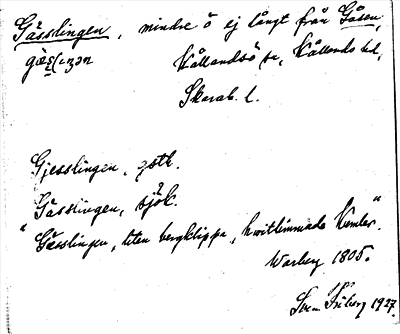 Gässlingen, mindre ö ej långt från Gåsen,
Kållandsö sn, Kållands hd,
Skarab. l.
Gjesslingen, gstk.
Gässlingen, sjök.
"Gässlingen, liten bergklippa, hwitlimmade Kumler".
Warberg 1805.
Sven Friberg 1927.